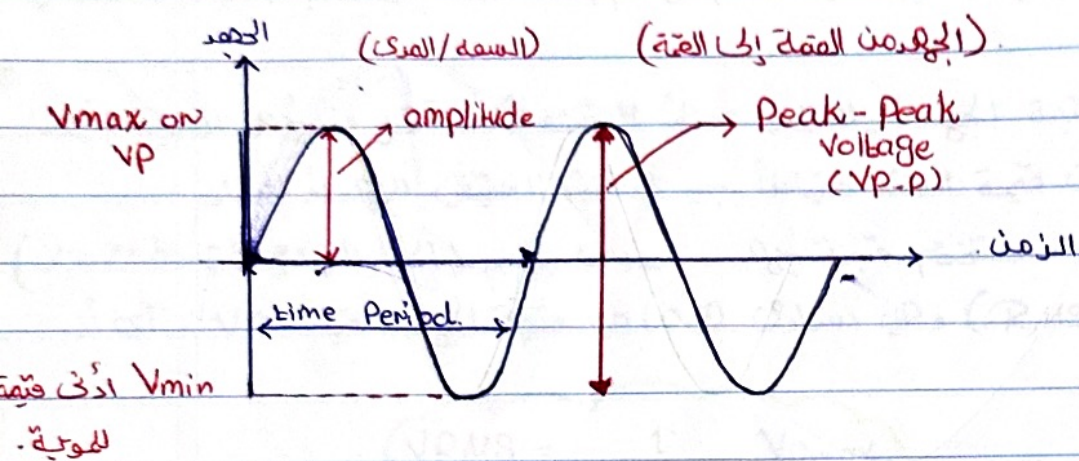 الجهد
(السعة/المدى)
(الجهد من القمة إلى القمة)
Vmax or
VP
amplitude
Peak-Peak
Voltage
(VP-P)
الزمن
time Period.
Vmin أدنى قيمة
للموجة.